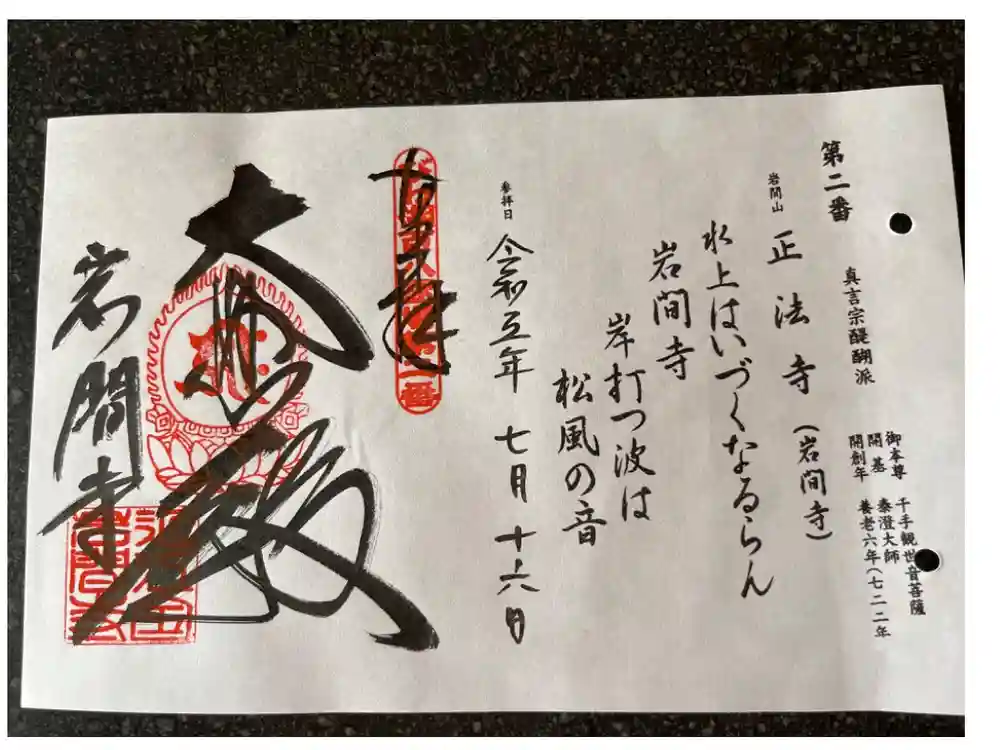 第二番
真言宗醍醐派
御本尊 千手観世音菩薩
開基 泰澄大師
開創年 養老六年(七二二年
岩間山 正法寺(岩間寺)
水上はいづくなるらん
岩間寺
岸打つ波は
松風の音
参拝日 令和五年 七月 十六日
奉拝
大悲殿
岩間寺